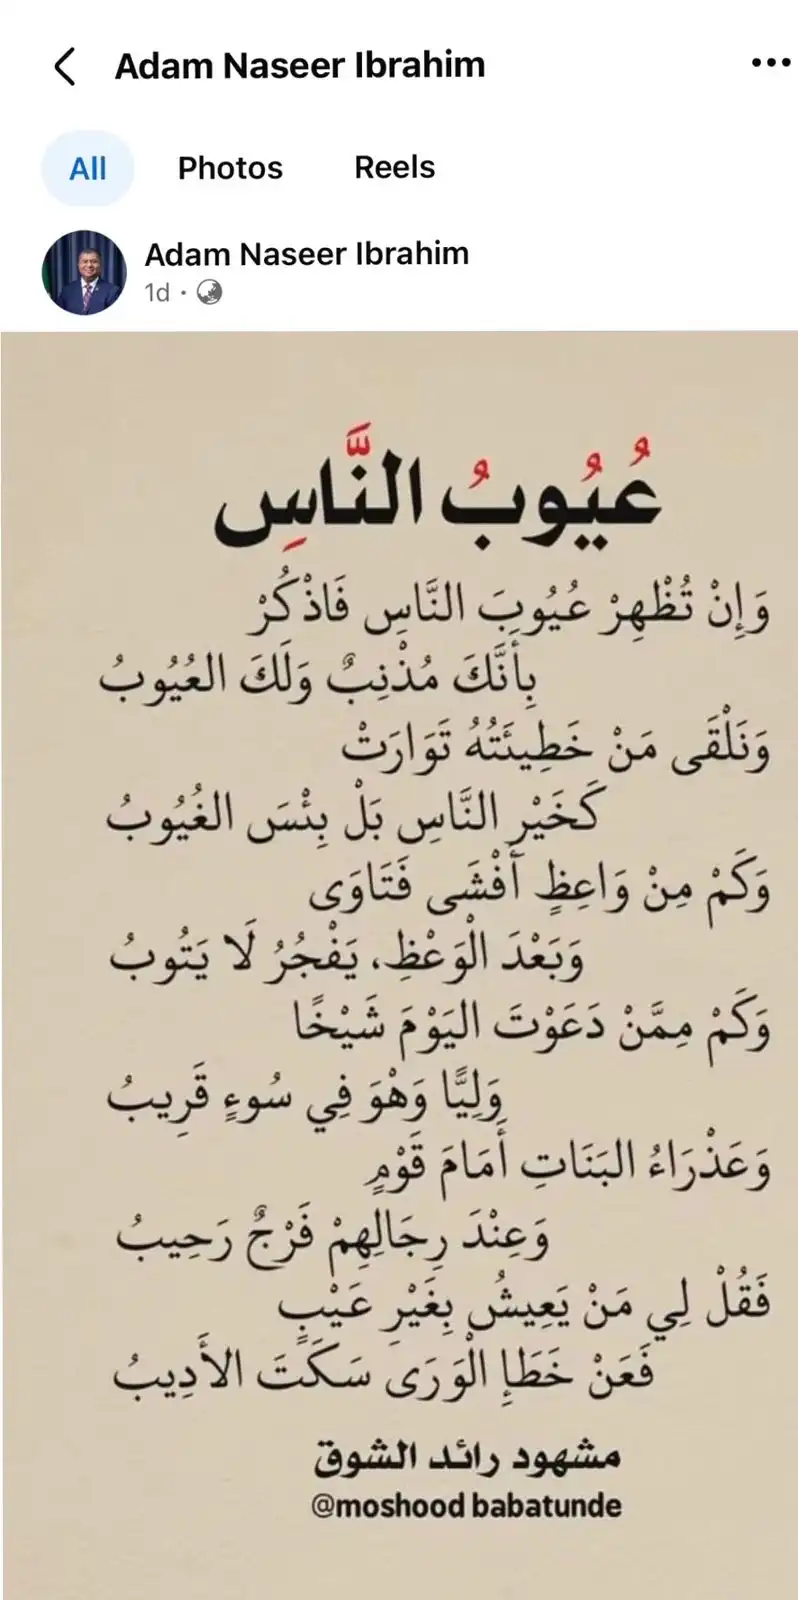 Adam Naseer Ibrahim
All Photos Reels
Adam Naseer Ibrahim
1d
عُيُوبُ النَّاسِ
وَإِنْ تُظْهِرْ عُيُوبَ النَّاسِ فَاذْكُرْ
بِأَنَّكَ مُذْنِبٌ وَلَكَ العُيُوبُ
وَنَلْقَى مَنْ خَطِيئَتُهُ تَوَارَتْ
كَخَيْرِ النَّاسِ بَلْ بِئْسَ الغُيُوبُ
وَكَمْ مِنْ وَاعِظٍ أَفْشَى فَتَاوَى
وَبَعْدَ الْوَعْظِ، يَفْجُرُ لَا يَتُوبُ
وَكَمْ مِمَّنْ دَعَوْتَ اليَوْمَ شَيْخًا
وَلِيًّا وَهْوَ فِي سُوءٍ قَرِيبُ
وَعَذْرَاءُ البَنَاتِ أَمَامَ قَوْمٍ
وَعِنْدَ رِجَالِهِمْ فَرْجٌ رَحِيبُ
فَقُلْ لِي مَنْ يَعِيشُ بِغَيْرِ عَيْبٍ
فَعَنْ خَطَإِ الْوَرَى سَكَتَ الأَدِيبُ
مشهود رائد الشوق
@moshood babatunde